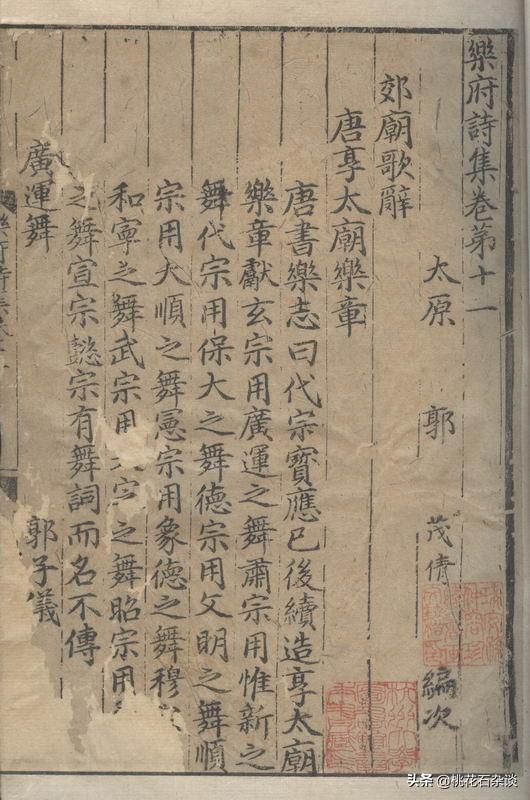 樂府詩集卷第十一
太原 郭 茂倩 編次
郊廟歌辭
唐享太廟樂章
唐書樂志曰代宗寳應已後續造享太廟
樂章獻玄宗用廣運之舞肅宗用惟新之
舞代宗用保大之舞德宗用文明之舞順
宗用大順之舞憲宗用象德之舞穆
和寧之舞武宗用之舞昭宗用
之舞宣宗懿宗有舞詞而名不傳
廣運舞 郭子儀
头条 @桃花石杂谈